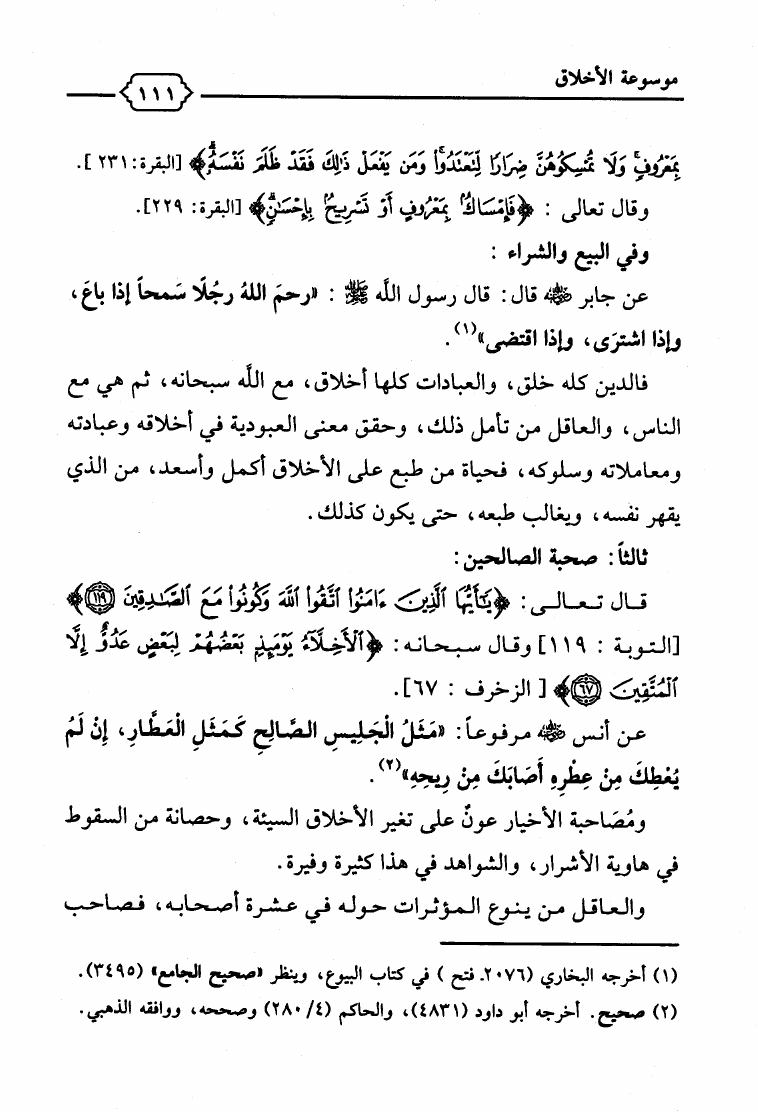 موسوعة الأخلاق
١١١
بِمَعْرُوفٍ وَلَا تُمْسِكُوهُنَّ ضِرَارًا لِّتَعْتَدُوا۟ وَمَن يَفْعَلْ ذَٰلِكَ فَقَدْ ظَلَمَ نَفْسَهُۥ﴾ [البقرة: ٢٣١].
وقال تعالى : ﴿فَإِمْسَاكٌۢ بِمَعْرُوفٍ أَوْ تَسْرِيحٌۢ بِإِحْسَٰنٍ﴾ [البقرة: ٢٢٩].
وفي البيع والشراء :
عن جابر ﵁ قال: قال رسول اللَّه ﷺ : «رحمَ اللهُ رجُلًا سَمحاً إذا باعَ،
وإذا اشترَى، وإذا اقتضى»(١).
فالدين كله خلق، والعبادات كلها أخلاق، مع اللَّه سبحانه، ثم هي مع
الناس، والعاقل من تأمل ذلك، وحقق معنى العبودية في أخلاقه وعبادته
ومعاملاته وسلوكه، فحياة من طبع على الأخلاق أكمل وأسعد، من الذي
يقهر نفسه، ويغالب طبعه، حتى يكون كذلك.
ثالثاً: صحبة الصالحين:
قـال تـعـالـى: ﴿يَٰٓأَيُّهَا ٱلَّذِينَ ءَامَنُوا۟ ٱتَّقُوا۟ ٱللَّهَ وَكُونُوا۟ مَعَ ٱلصَّٰدِقِينَ ١١٩﴾
[التوبة : ١١٩] وقال سبحانه: ﴿ٱلْأَخِلَّآءُ يَوْمَئِذٍۭ بَعْضُهُمْ لِبَعْضٍ عَدُوٌّ إِلَّا
ٱلْمُتَّقِينَ ٦٧﴾ [ الزخرف : ٦٧].
عـن أنس ﵁ مرفوعاً: «مَثَلُ الْجَلِيسِ الصَّالِحِ كَمَثَلِ الْعَطَّارِ، إِنْ لَمْ
يُعْطِكَ مِنْ عِطْرِهِ أَصَابَكَ مِنْ رِيحِهِ»(٢).
ومُصَاحبة الأخيار عونٌ على تغير الأخلاق السيئة، وحصانة من السقوط
في هاوية الأشرار، والشواهد في هذا كثيرة وفيرة.
والعاقل من ينوع المؤثرات حوله في عشرة أصحابه، فصاحب
(١) أخرجه البخاري (٢٠٧٦ـ فتح ) في كتاب البيوع، وينظر «صحيح الجامع» (٣٤٩٥).
(٢) صحيح. أخرجه أبو داود (٤٨٣١)، والحاكم (٢٨٠/٤) وصححه، ووافقه الذهبي.